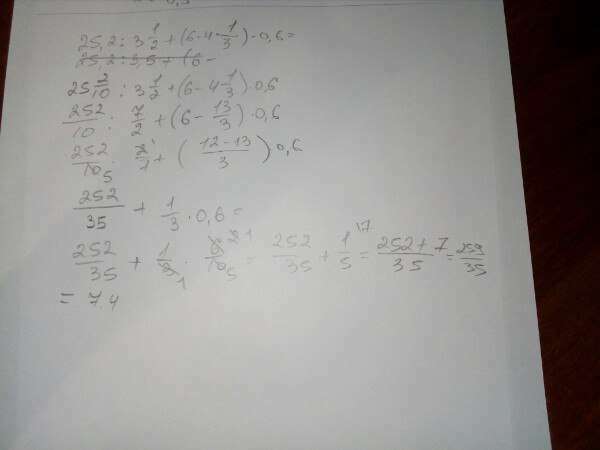 25,2 : 3 1/2 + (6 - 4 - 1/3) · 0,6 =
25,2 : 3,5 + (6 -
25 2/10 : 3 1/2 + (6 - 4 - 1/3) · 0,6
252/10 : 7/2 + (6 - 13/3) · 0,6
252/10 5 · 2/7 + (12 - 13/3) · 0,6
252/35 + 1/3 · 0,6 =
252/35 + 1/3 1 · 6 2 1/10 5 = 252/35 + 1/5 17 = 252 + 7/35 = 259/35
= 7.4